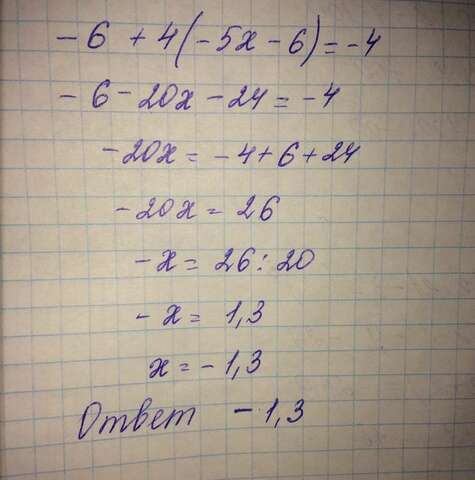 -6 +4(-5x-6)=-4
-6-20x-24=-4
-20x=-4+6+24
-20x=26
-x=26:20
-x=1,3
x=-1,3
Ответ -1,3